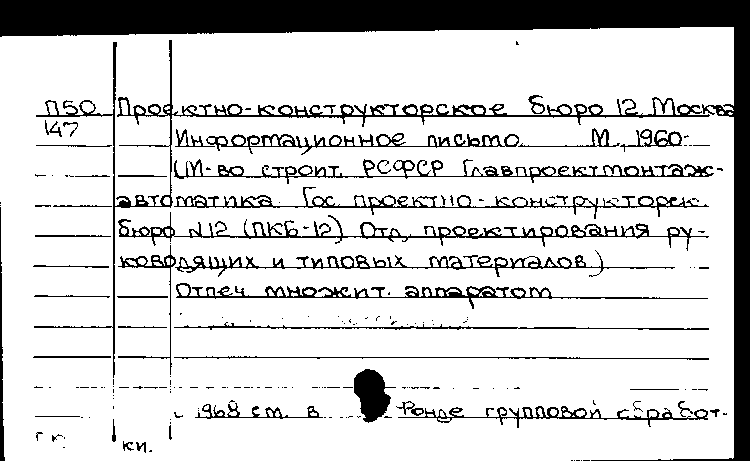 П50 Проектно-конструкторское бюро 12. Москва
147 Информационное письмо. М., 1960-
(М-во строит. РСФСР Главпроектмонтаж-
автоматика. Гос. проектно-конструкторск.
бюро №12 (ПКБ-12) Отд. проектирования ру-
ководящих и типовых материалов)
Отпеч. множит. аппаратом
1968 см. в Фонде групповой обработ-
кн.